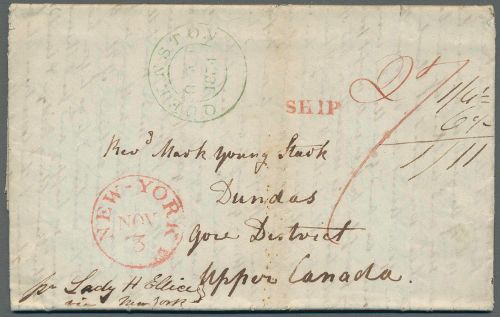 QUEENSTON
SHIP
27
1/4½
6½
1/11
Revd Mark Young Stark
Dundas
Gore District
Upper Canada.
NEW-YORK
NOV
3
pr Lady H Ellice
via New York